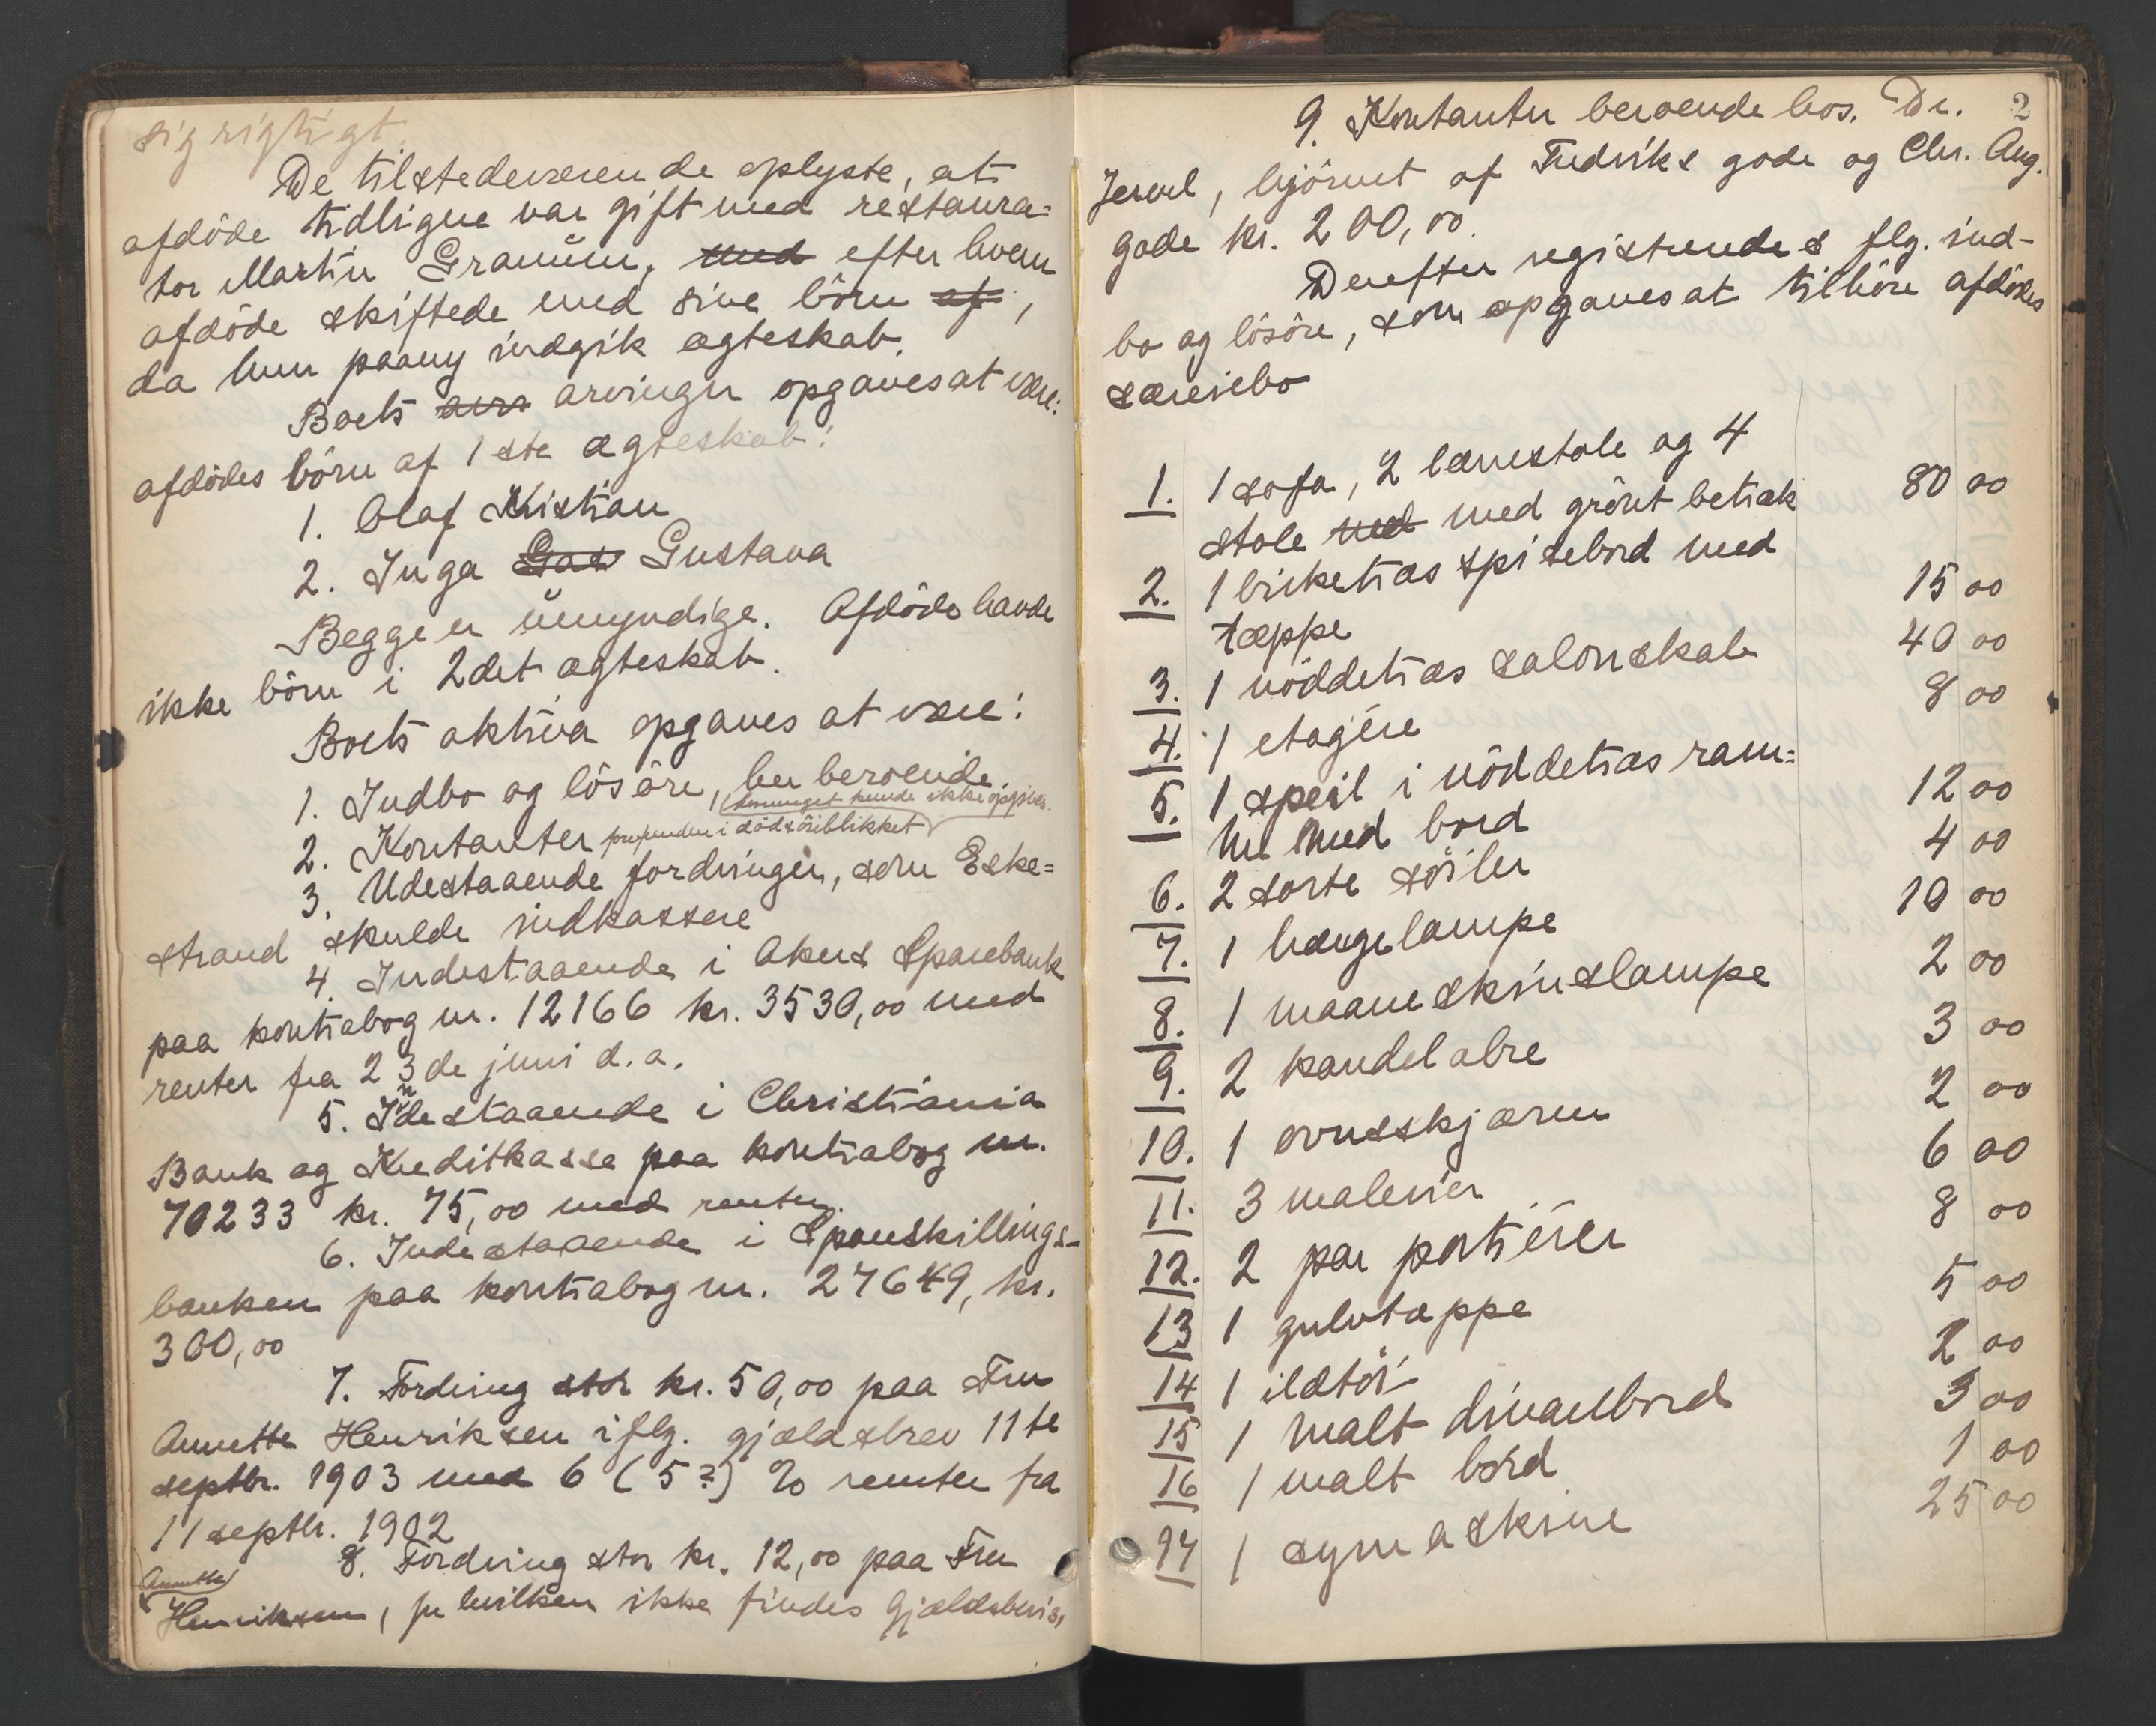 sig rigtigt.
De tilstedeværende oplyste, at
afdöde tidligere var gift med restaura=
tör Martin Granum, med efter hvem
afdöde skiftede med sine börn af,
da hun paany indgik ægteskab.
Boets arvinger opgaves at være:
afdödes börn af 1ste ægteskab:
1. Olaf Kristian
2. Inga Gus Gustava
Begge er umyndige. Afdöde havde
ikke börn i 2det ægteskab.
Boets aktiva opgaves at være:
1. Indbo og lösöre, her beroende.
2. Kontanter i dödsöiblikket kunde ikke opgives.
3. Udestaaende fordringer, som Eske=
strand skulde indkassere
4. Indestaaende i Akers Sparebank
paa kontrabog nr. 12166 kr. 3530,00 med
renter fra 23de juni d.a.
5. Indestaaende i Christiania
Bank og Kreditkasse paa kontrabog nr.
70233 kr. 75,00 med renter.
6. Indestaaende i Spareskillings-
banken paa kontrabog nr. 27649, kr.
300,00
7. Fordring stor kr. 50,00 paa Fru
Annette Henriksen iflg. gjældsbrev 11te
septbr. 1903 med 6 (5?) % renter fra
11 septbr. 1902
8. Fordring stor kr. 12,00 paa Fru
Annette
Henriksen, for hvilken ikke findes gjældsbevis,
2
9. Kontanter beroende hos. Dr.
Jervel, hjörnet af Fredriks gade og Chr. Aug.
gade kr. 200,00.
Derefter registreredes flg. ind-
bo og lösöre, som opgaves at tilhöre afdödes
særeiebo
1. 1 sofa, 2 lænestole og 4
stole med med grönt betræk 80 00
2. 1 birketræs spisebord med
tæppe 15 00
3. 1 nöddetræs salonskab 40 00
4. 1 etagére 8 00
5. 1 speil i nöddetræs ram=
me med bord 12 00
6. 2 sorte söiler 4 00
7. 1 hængelampe 10 00
8. 1 maaneskinslampe 2 00
9. 2 kandelabre 3 00
10. 1 ovnsskjærm 2 00
11. 3 malerier 6 00
12. 2 par portiérer 8 00
13 1 gulvtæppe 5 00
14 1 ildtöi 2 00
15 1 malt divanbord 3 00
16 1 malt bord 1 00
17 1 symaskine 25 00